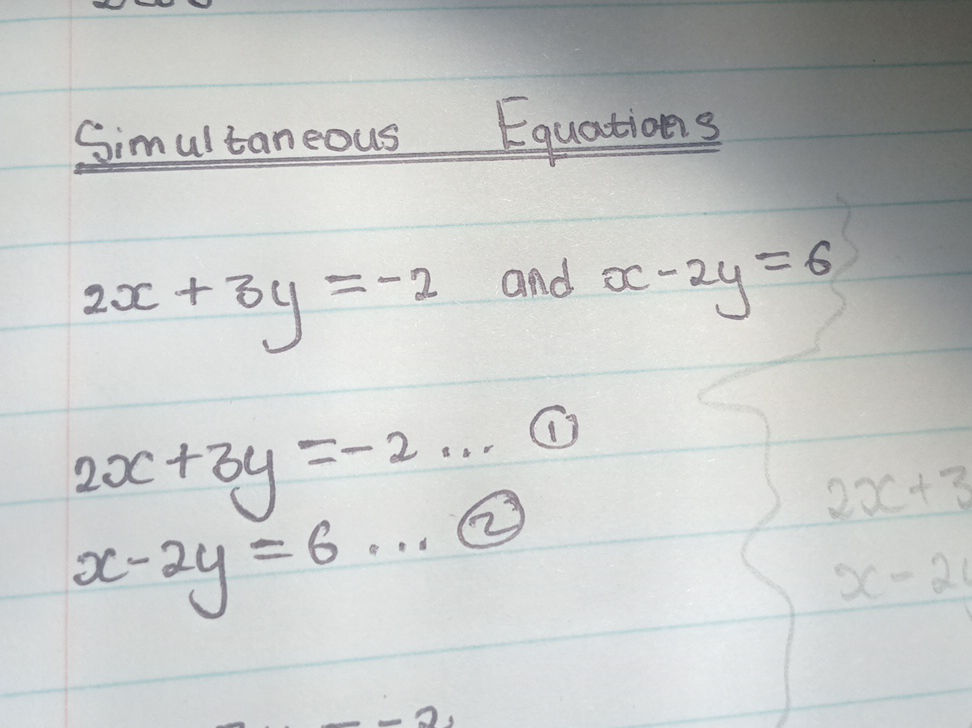 Simultaneous Equations
2x + 3y = -2 and x - 2y = 6
2x + 3y = -2 ... ①
x - 2y = 6 ... ②
2x + 3
x - 2y
= -2